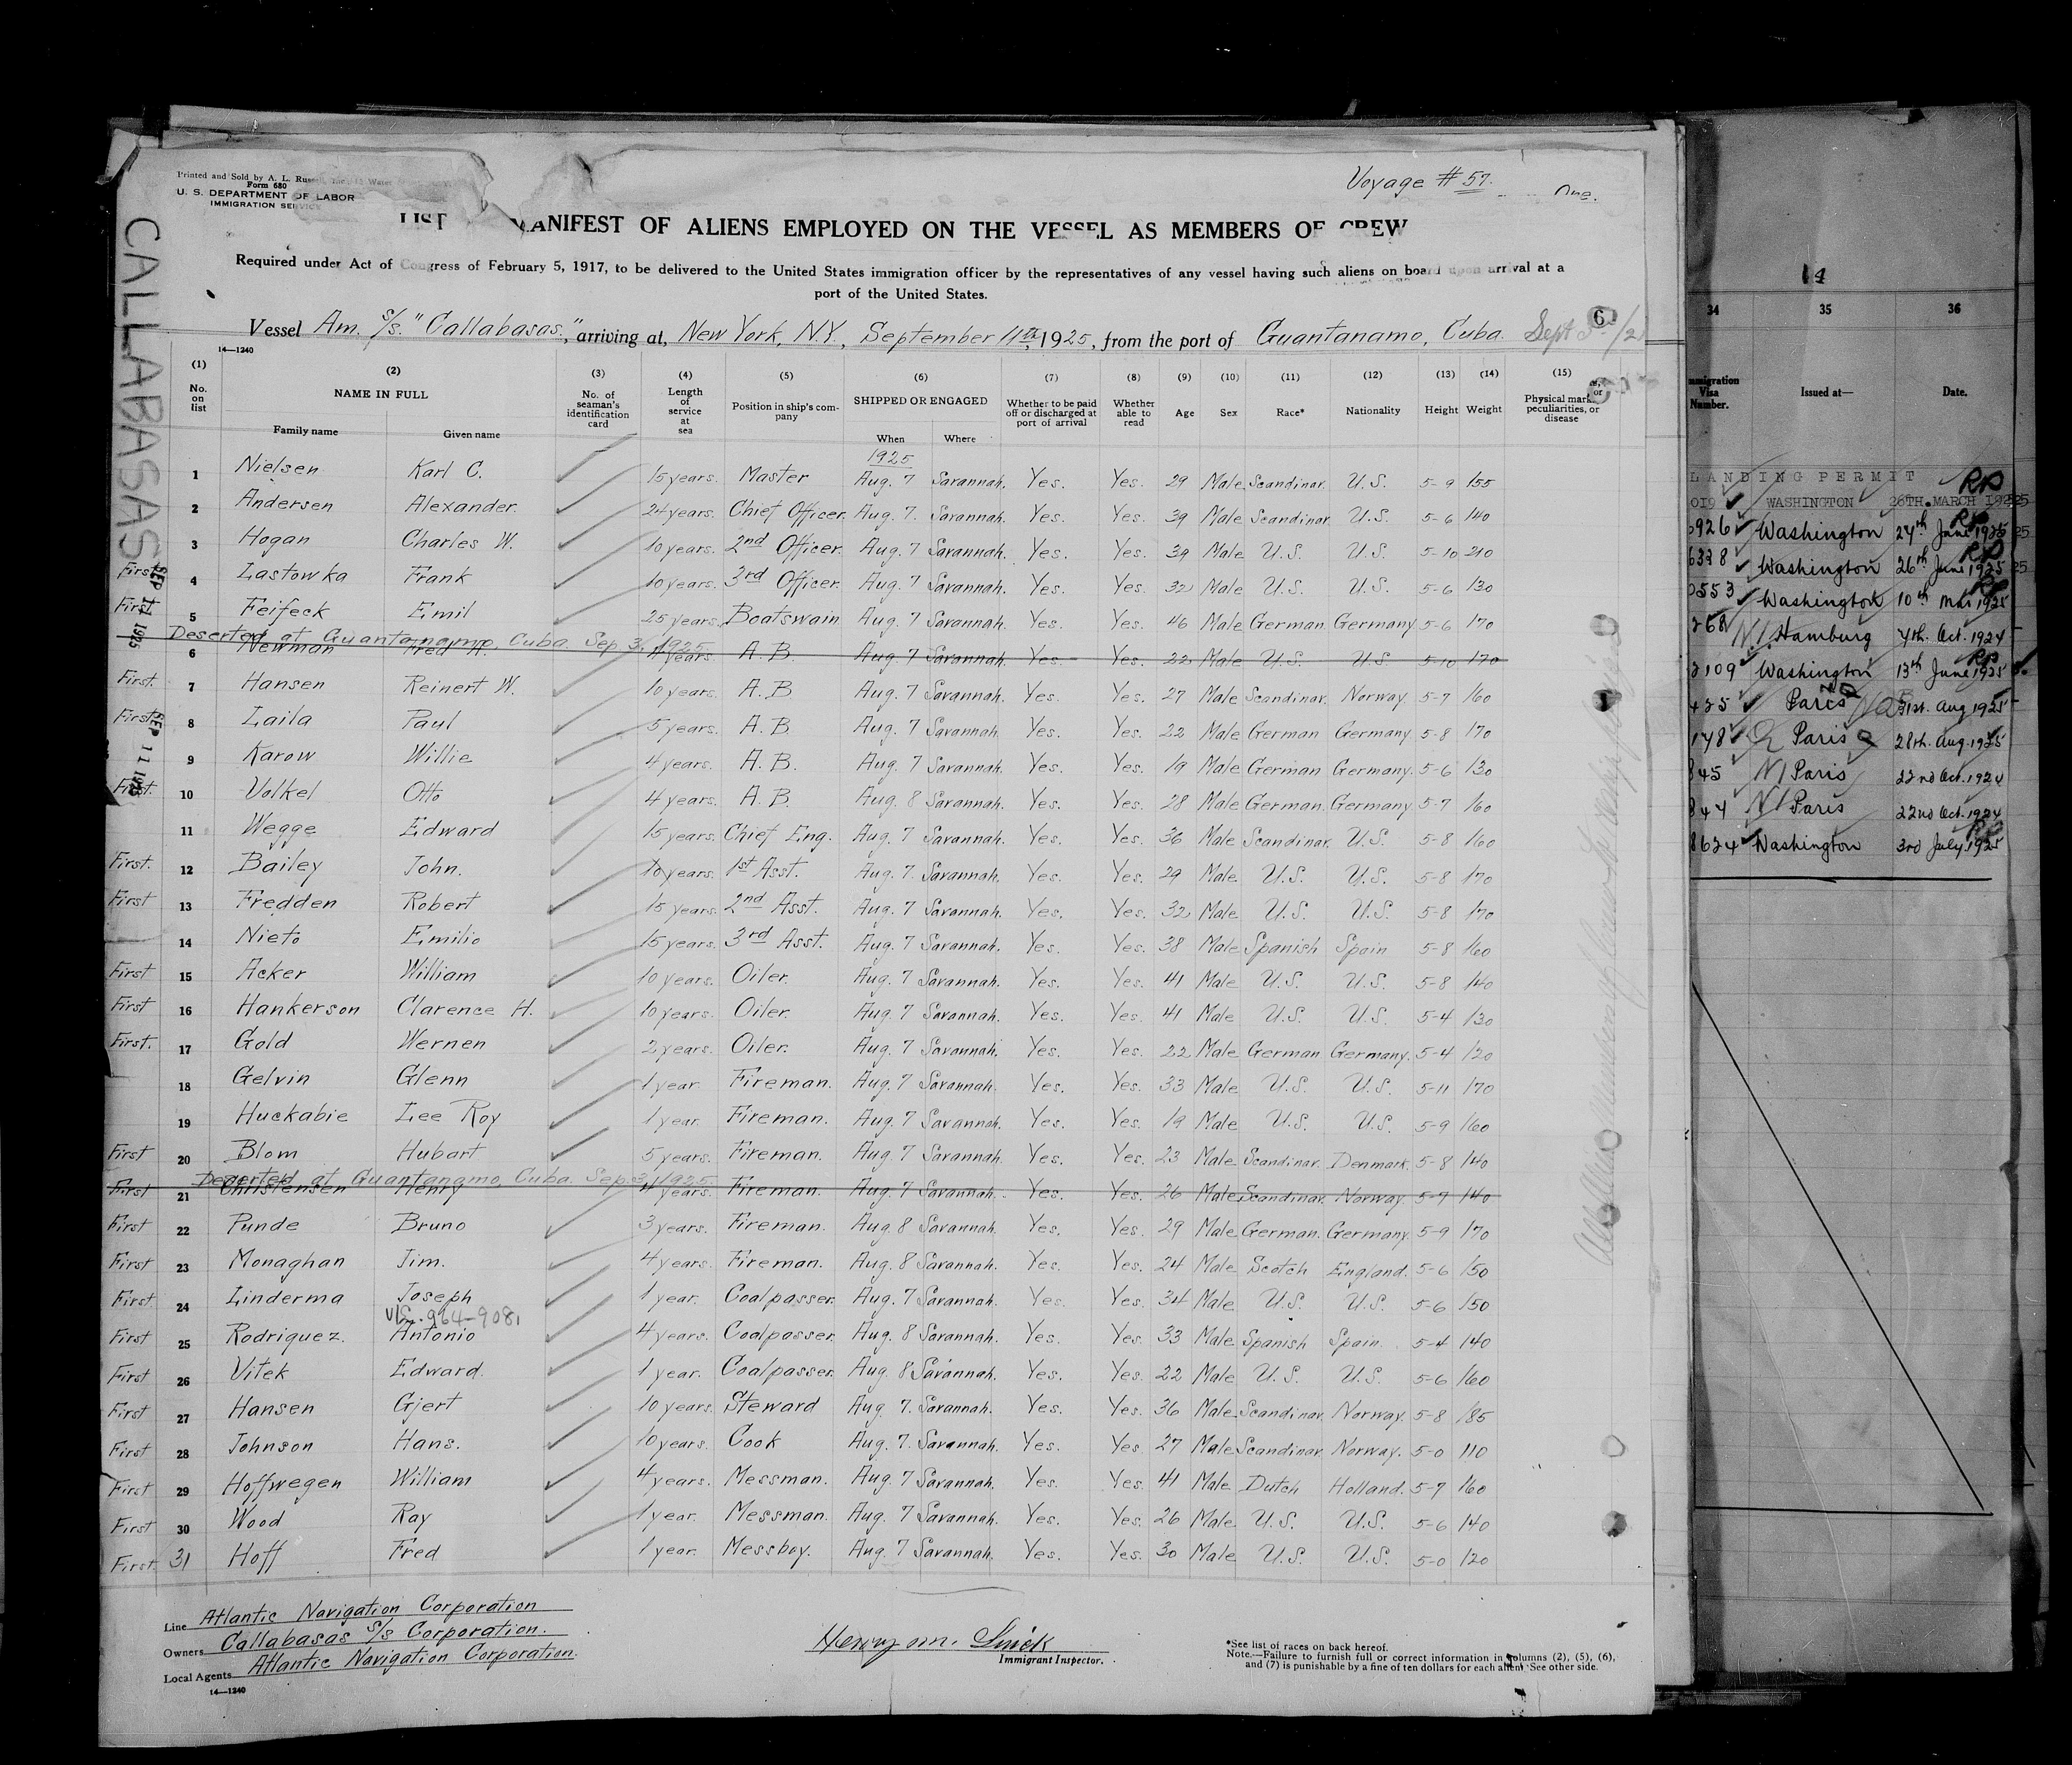 Printed and Sold by A. L. Russell, Inc. Water
Form 680
U. S. DEPARTMENT OF LABOR
IMMIGRATION SERVICE
Voyage # 57.
One.
LIST MANIFEST OF ALIENS EMPLOYED ON THE VESSEL AS MEMBERS OF CREW
Required under Act of Congress of February 5, 1917, to be delivered to the United States immigration officer by the representatives of any vessel having such aliens on board upon arrival at a
port of the United States.
Vessel Am. S/S. "Callabasas.", arriving at, New York, N.Y., September 11th, 1925, from the port of Guantanamo, Cuba.
14—1240
CALLABASAS
SEP 11 1925
SEP 11 1925
(1) No. on list (2) NAME IN FULL Family name Given name (3) No. of seaman's identification card (4) Length of service at sea (5) Position in ship's company (6) SHIPPED OR ENGAGED When Where (7) Whether to be paid off or discharged at port of arrival (8) Whether able to read (9) Age (10) Sex (11) Race* (12) Nationality (13) Height (14) Weight (15) Physical marks, peculiarities, or disease
1925
1 Nielsen Karl C. 15 years. Master Aug. 7 Savannah. Yes. Yes. 29 Male Scandinav. U.S. 5-9 155
2 Andersen Alexander. 24 years. Chief Officer. Aug. 7. Savannah. Yes. Yes. 39 Male Scandinav. U.S. 5-6 140
3 Hogan Charles W. 10 years. 2nd Officer. Aug. 7 Savannah. Yes. Yes. 39 Male U.S. U.S. 5-10 210
First 4 Lastowka Frank 10 years. 3rd Officer. Aug. 7 Savannah. Yes. Yes. 32 Male U.S. U.S. 5-6 130
First 5 Feifeck Emil 25 years. Boatswain Aug. 7 Savannah. Yes. Yes. 46 Male German. Germany 5-6 170
Deserted at Guantanamo, Cuba. Sep. 3, 1925.
6 Newman Fred A. 4 years. A.B. Aug. 7 Savannah. Yes. Yes. 22 Male U.S. U.S. 5-10 170
First. 7 Hansen Reinert W. 10 years. A.B. Aug. 7 Savannah. Yes. Yes. 27 Male Scandinav. Norway. 5-7 160
First 8 Laila Paul 5 years. A.B. Aug. 7 Savannah. Yes. Yes. 22 Male German Germany 5-8 170
9 Karow Willie 4 years. A.B. Aug. 7 Savannah. Yes. Yes. 19 Male German Germany. 5-6 130
First. 10 Volkel Otto 4 years. A.B. Aug. 8 Savannah. Yes. Yes. 28 Male German. Germany. 5-7 160
11 Wegge Edward 15 years. Chief Eng. Aug. 7 Savannah. Yes. Yes. 36 Male Scandinav. U.S. 5-8 160
First. 12 Bailey John. 10 years. 1st Asst. Aug. 7. Savannah. Yes. Yes. 29 Male U.S. U.S. 5-8 170
First 13 Fredden Robert 15 years. 2nd Asst. Aug. 7 Savannah. Yes. Yes. 32 Male U.S. U.S. 5-8 170
14 Nieto Emilio 15 years. 3rd Asst. Aug. 7 Savannah. Yes. Yes. 38 Male Spanish Spain 5-8 160
First 15 Acker William 10 years. Oiler. Aug. 7 Savannah. Yes. Yes. 41 Male U.S. U.S. 5-8 140
First 16 Hankerson Clarence H. 10 years. Oiler. Aug. 7 Savannah. Yes. Yes. 41 Male U.S. U.S. 5-4 130
First. 17 Gold Wernen 2 years. Oiler. Aug. 7 Savannah. Yes. Yes. 22 Male German Germany. 5-4 120
18 Gelvin Glenn 1 year. Fireman. Aug. 7 Savannah. Yes. Yes. 33 Male U.S. U.S. 5-11 170
19 Huckabie Lee Roy 1 year. Fireman. Aug. 7 Savannah. Yes. Yes. 19 Male U.S. U.S. 5-9 160
First 20 Blom Hubart 5 years. Fireman. Aug. 7 Savannah. Yes. Yes. 23 Male Scandinav. Denmark. 5-8 140
Deserted at Guantanamo, Cuba. Sep. 3, 1925.
First 21 Christensen Henry 4 years. Fireman. Aug. 7 Savannah. Yes. Yes. 26 Male Scandinav. Norway. 5-7 140
First 22 Punde Bruno 3 years. Fireman. Aug. 8 Savannah. Yes. Yes. 29 Male German. Germany. 5-9 170
First 23 Monaghan Jim. 4 years. Fireman. Aug. 8 Savannah. Yes. Yes. 24 Male Scotch England. 5-6 150
First 24 Linderma Joseph 1 year. Coalpasser. Aug. 7 Savannah. Yes. Yes. 34 Male U.S. U.S. 5-6 150
964-9081
First 25 Rodriquez. Antonio 4 years. Coalpasser. Aug. 8 Savannah. Yes. Yes. 33 Male Spanish Spain. 5-4 140
First 26 Vitek Edward. 1 year. Coalpasser. Aug. 8 Savannah. Yes. Yes. 22 Male U.S. U.S. 5-6 160
First 27 Hansen Gjert 10 years. Steward Aug. 7. Savannah. Yes. Yes. 36 Male Scandinav. Norway. 5-8 185
First 28 Johnson Hans. 10 years. Cook Aug. 7. Savannah. Yes. Yes. 27 Male Scandinav. Norway. 5-0 110
First 29 Hoffwegen William 4 years. Messman. Aug. 7 Savannah. Yes. Yes. 41 Male Dutch Holland. 5-7 160
First 30 Wood Ray 1 year. Messman. Aug. 7 Savannah. Yes. Yes. 26 Male U.S. U.S. 5-6 140
First. 31 Hoff Fred 1 year. Messboy. Aug. 7 Savannah. Yes. Yes. 30 Male U.S. U.S. 5-0 120
Line Atlantic Navigation Corporation
Owners Callabasas S/S Corporation.
Local Agents Atlantic Navigation Corporation.
14—1240
Immigrant Inspector.
*See list of races on back hereof.
Note.—Failure to furnish full or correct information in columns (2), (5), (6),
and (7) is punishable by a fine of ten dollars for each alien. See other side.
14
34 35 36
Immigration Visa Number. Issued at— Date.
LANDING PERMIT
019 WASHINGTON 26TH. MARCH 1925
926 Washington 24th June 1925
6328 Washington 26th June 1925
0553 Washington 10th Mar 1925
268 Hamburg 4th. Oct. 1924
2109 Washington 13th June 1925
425 Paris 31st. Aug 1925
148 Paris 28th. Aug. 1925
845 Paris 22nd Oct. 1924
844 Paris 22nd Oct. 1924
8624 Washington 3rd July 1925